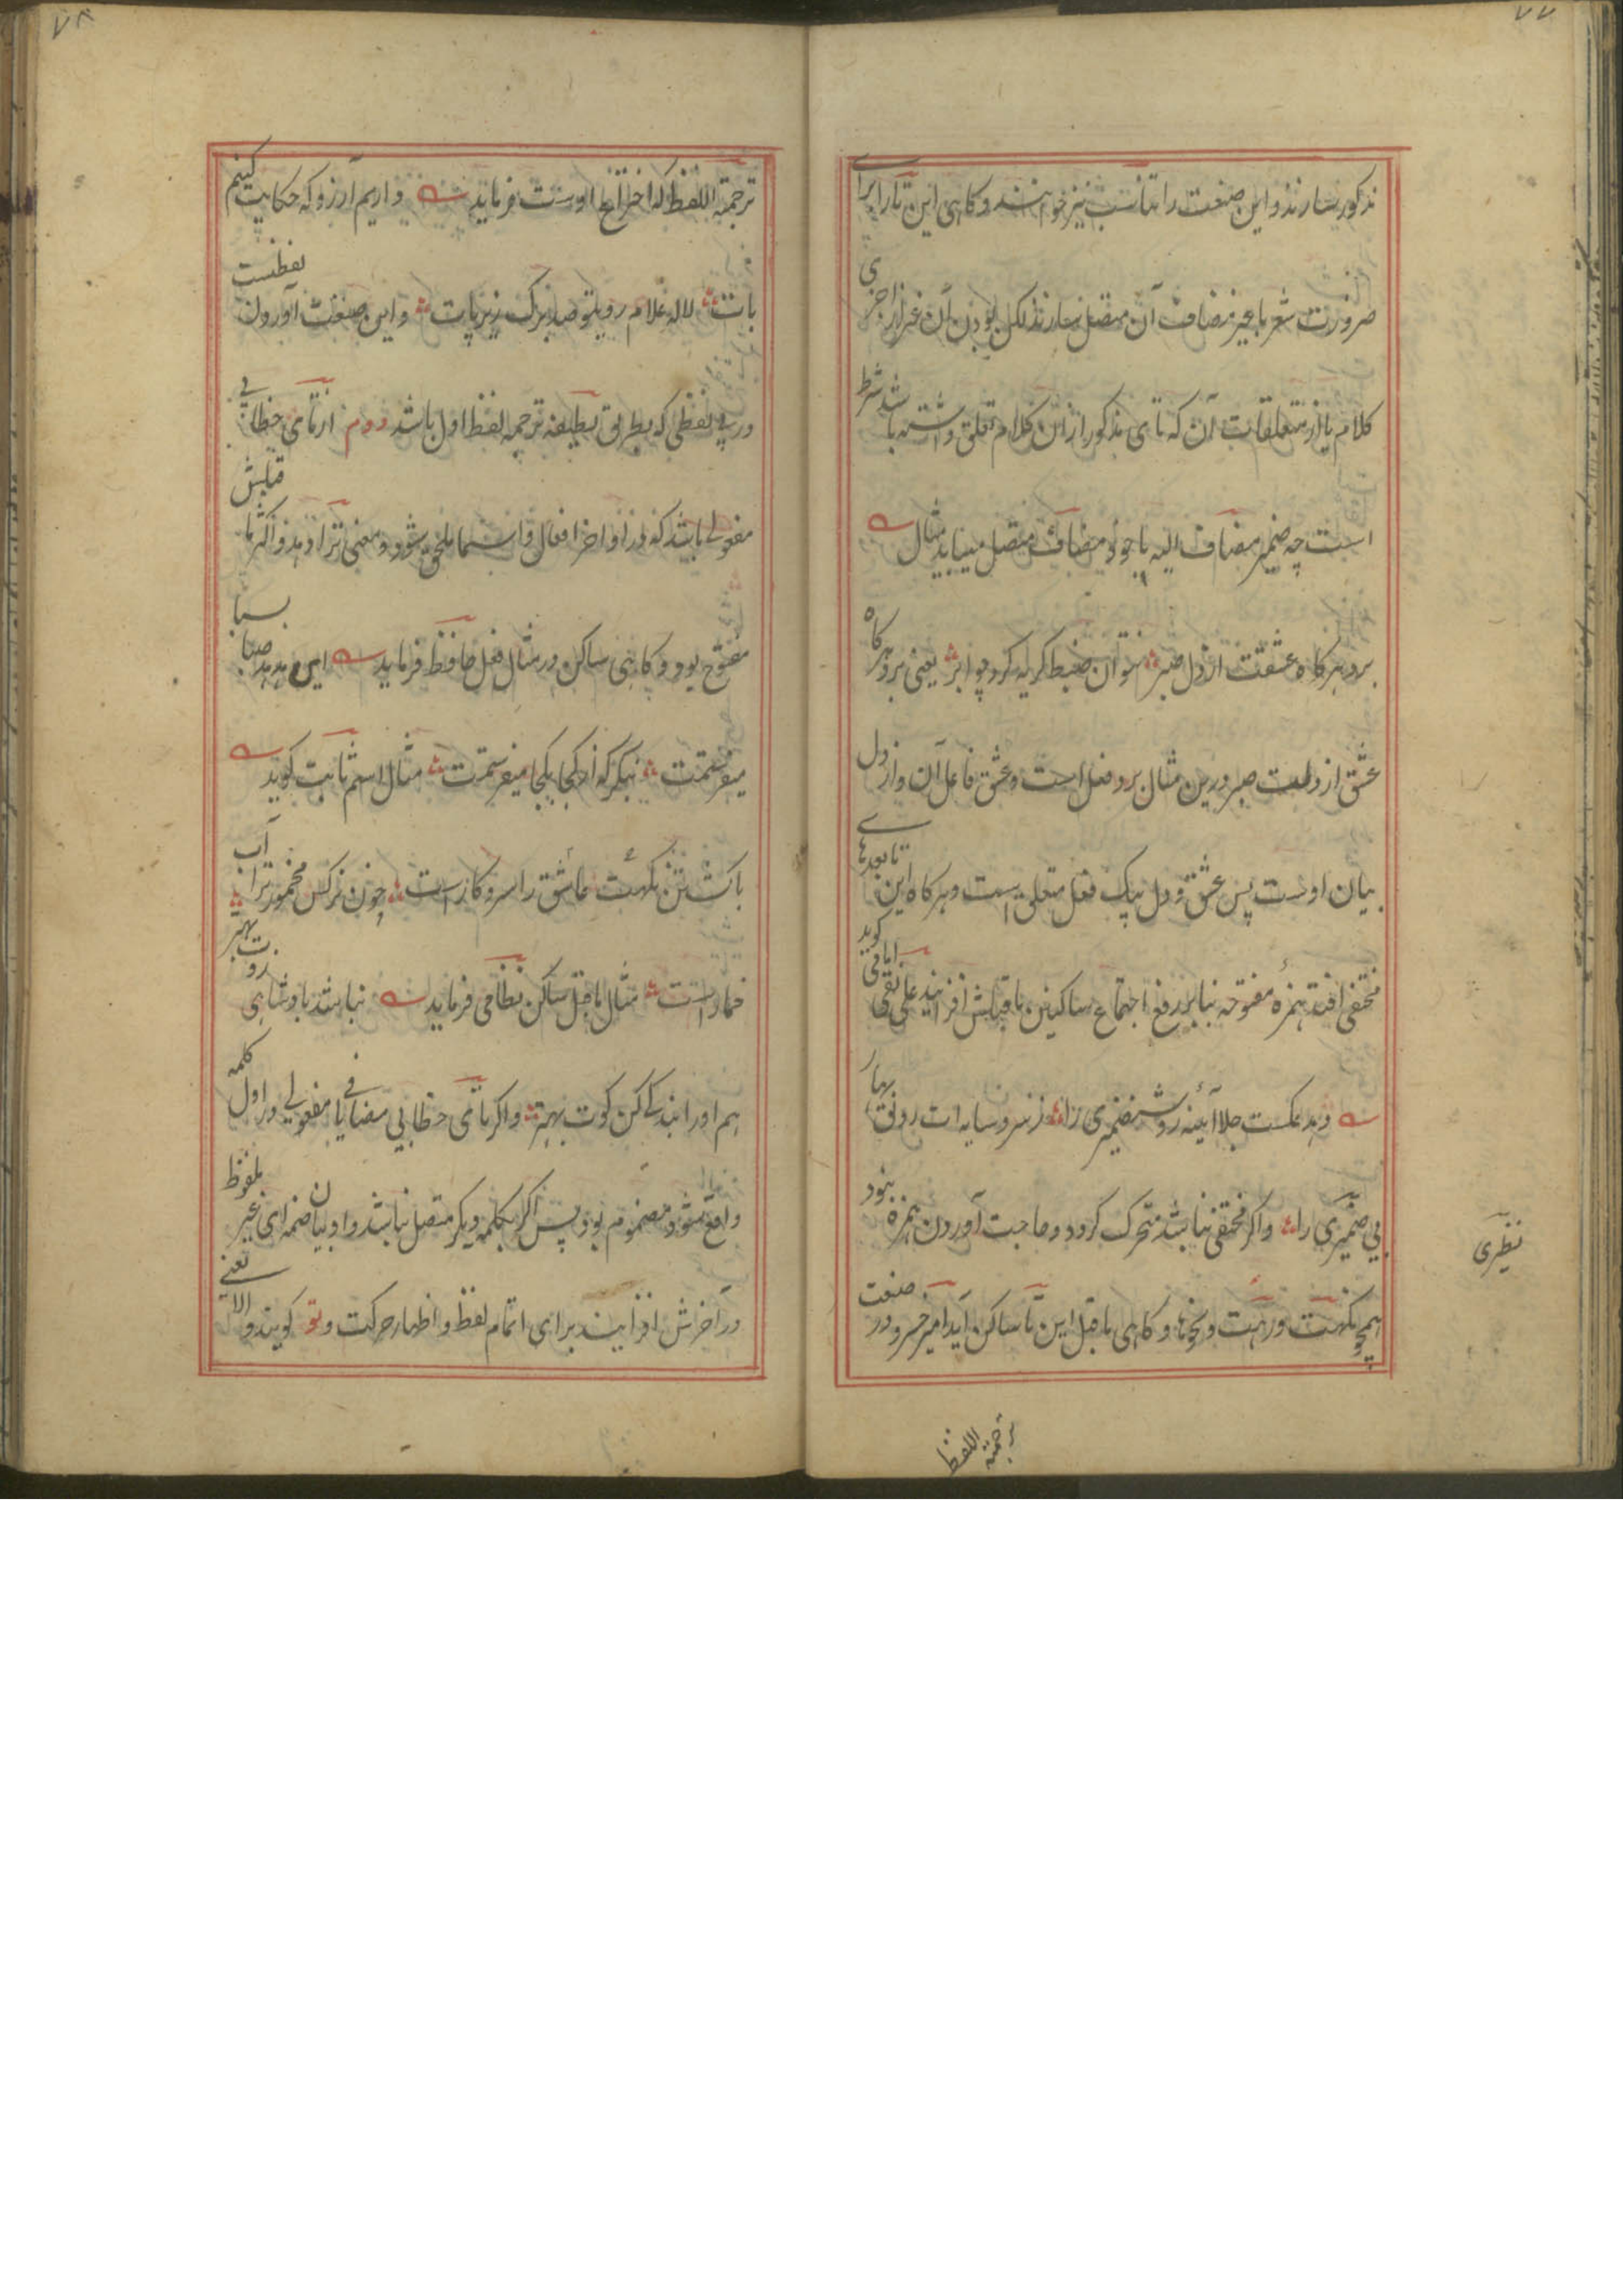 ۷۷
مذکور سازند و این صنعت را تناسب نیز خوانند و کاهی این تا را برای
ضرورت شعر با غیر مضاف آن متصل سازند لکن بودن آن غیر از اجزی
کلام یا از متعلقات آن که تای مذکور از این کلام تعلق داشته باشد شرط
است چه ضمیر مضاف الیه با جزو مضاف متصل میباید مثال
برد هر کاه عشقت از دل صبر نتوان ضبط کریه کرد چو ابر یعنی برد هر کاه
عشق از دلت صبر درین مثال برد فعل است و عشق فاعل آن و از دل
بیان اوست پس عشق و دل بیک فعل متعلق است و هر کاه این تا بعد های
مختفی افتد همزه مفتوحه بنابر رفع اجتماع ساکنین ما قبلش افزایند علی نقی ایامی کوید
دهد عکست جلا آئینه روشنضمیری را ز سرو سایه ات رونق بهار
بی ضمیری را و اکر مختفی نباشد متحرک کردد و حاجت آوردن همزه نبود
همچو نکهت و رهت و نحوها و کاهی ما قبل این تا ساکن آید امیر خسرو در صنعت
نظیری
ترجمة اللفظ
۷۸
ترجمة اللفظ که اختراع اوست فرماید داریم آرزو که حکایت کنیم
بات لاله غلام روی تو صد برک زیر پات و این صنعت آوردن لفظیست
در پی لفظی که بطریق لطیفه ترجمه لفظ اول باشد دوم از تای خطابی
مفعولی باشد که در اواخر افعال و اسما ملحق شود و معنی ترا دهد و اکثر ما قبلش
مفتوح بود و کاهی ساکن در مثال فعل حافظ فرماید ای هدهد صبا بسبا
میفرستمت بنکر که از کجا بکجا میفرستمت مثال اسم ثابت کوید
با کشتن نکهت عاشق را سر و کار است چون نرکس مخمور ترا آب
خمار است مثال ما قبل ساکن نظامی فرماید نباشد پادشاهی زوت بهتر
هم او را بندکی کن کوت بهتر و اکر تای خطابی مضافی یا مفعولی در اول کلمه
واقع شود مضموم بود پس اکر بکلمه دیکر متصل نباشد واو بیان ضمه ای غیر ملفوظ
در آخرش افزایند برای اتمام لفظ و اظهار حرکت و تو کویند و الا یعنی